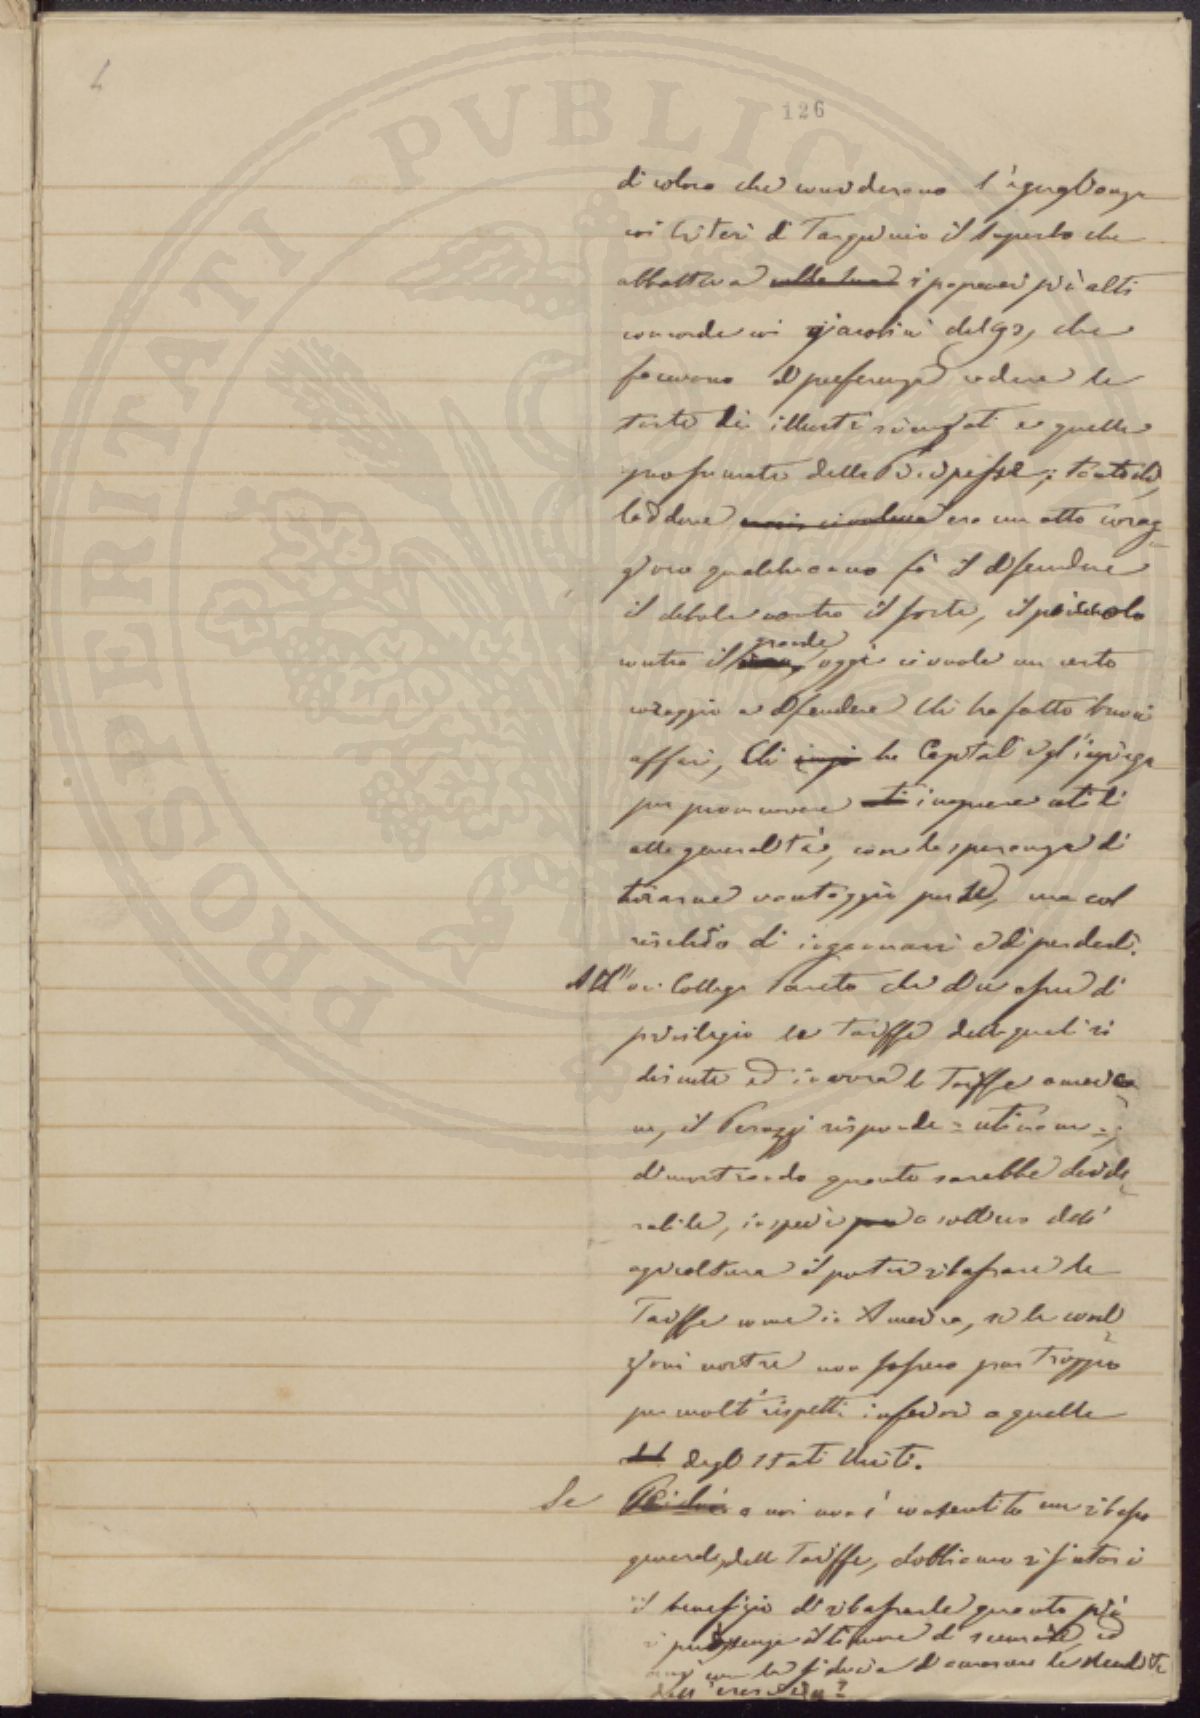 4
126
di coloro che considerano l'eguaglianza
coi criteri di Tarquinio il Superbo che
abbatteva colla sua i papaveri più alti
concorde coi giacobini del 93, che
facevano di preferenza cadere le
teste di illustri scienziati e quelle
profumate delle Principesse;
laddove era un atto corag
gioso qualche anno fà il difendere
il debole contro il forte, il piccolo
contro il grande, oggi ci vuole un certo
coraggio a difendere chi ha fatto buoni
affari, chi ha Capitali e gl'impiega
per promuovere imprese utili
alla generalità, con la speranza di
tirarne vantaggio per sè, ma col
rischio di ingannarsi e di perderli.
All'on. Collega Pareto che di
privilegio le Tariffe delle quali si
discute ed invoca le Tariffe america
ne, il Perazzi risponde = utinam =,
dimostrando quanto sarebbe deside
rabile, in specie a sollievo dell'
agricoltura il poter ribassare le
Tariffe come in America, se le condi
zioni nostre non fossero pur troppo
per molti rispetti inferiori a quelle
degli Stati Uniti.
Se a noi non è consentito un ribasso
generale delle Tariffe, dobbiamo rifiutarci
il benefizio di ribassarle quanto più
si può senza il timore di scemare, ed
anzi con la fiducia di
dell'